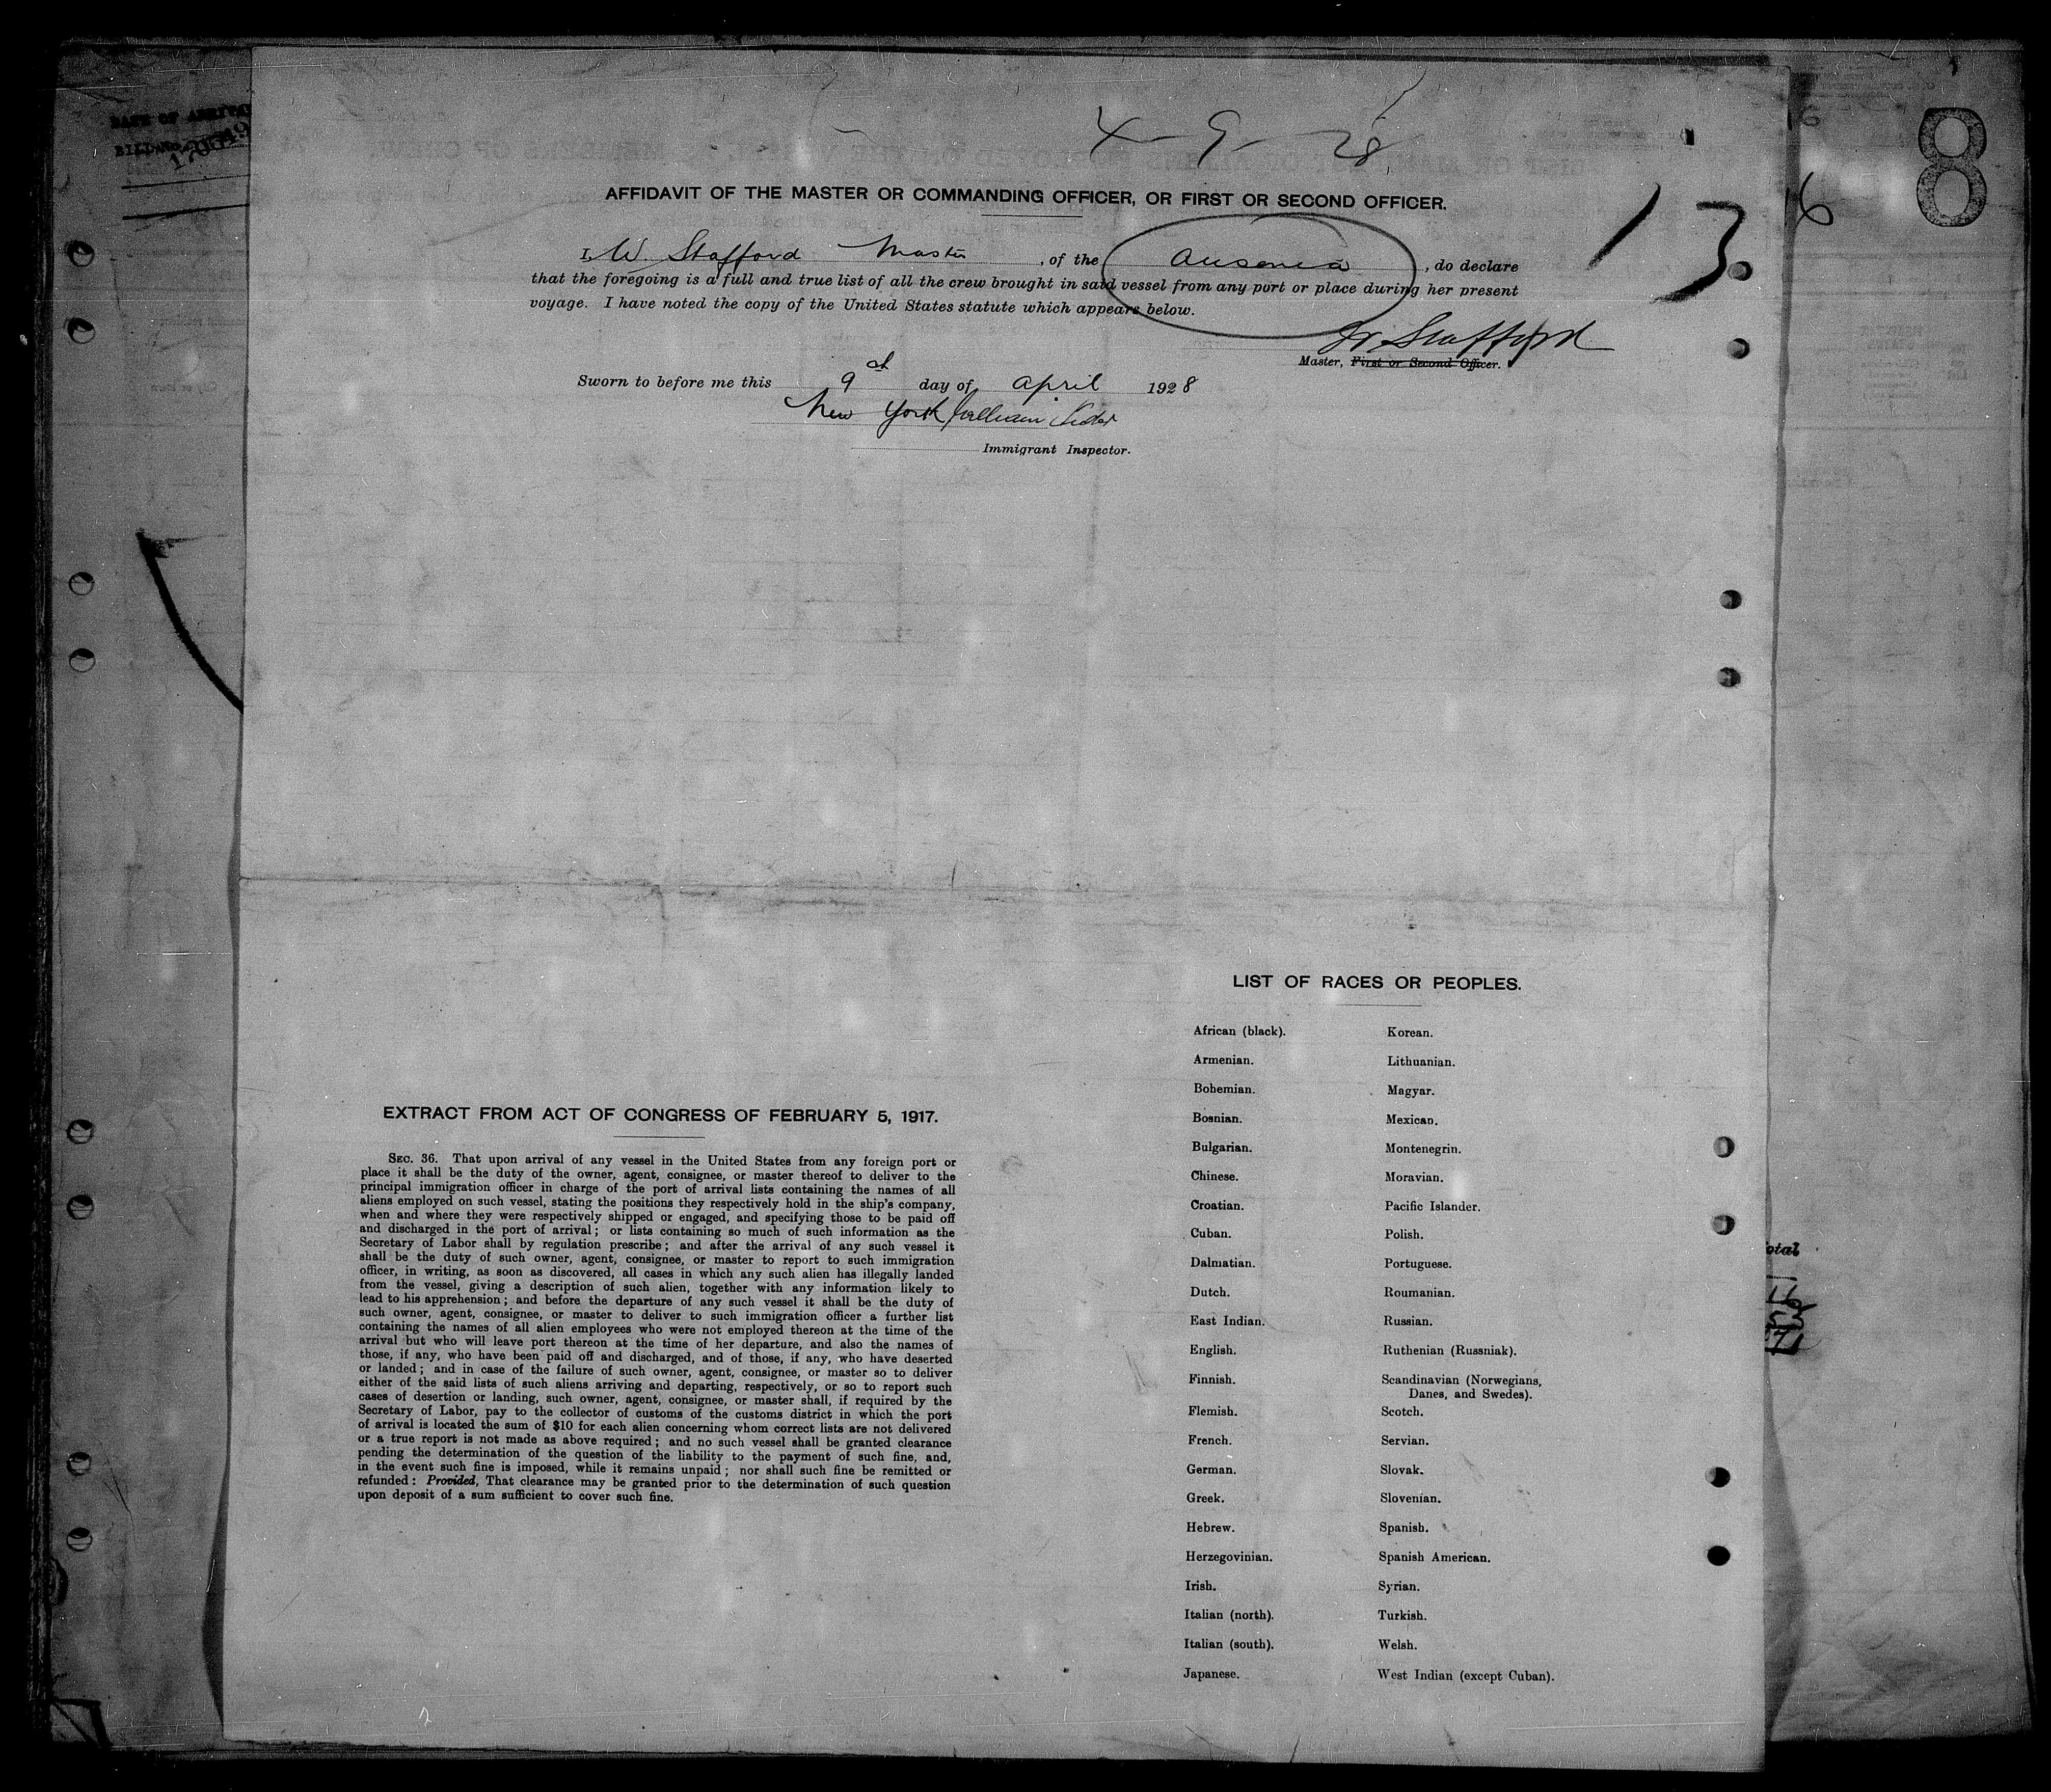 4-9-28
8
13
6
AFFIDAVIT OF THE MASTER OR COMMANDING OFFICER, OR FIRST OR SECOND OFFICER.
I, W. Stafford Master, of the Ausonia, do declare
that the foregoing is a full and true list of all the crew brought in said vessel from any port or place during her present
voyage. I have noted the copy of the United States statute which appears below.
W. Stafford
Master, First or Second Officer.
Sworn to before me this 9th day of April 1928
New York William
Immigrant Inspector.
LIST OF RACES OR PEOPLES.
African (black). Korean.
Armenian. Lithuanian.
Bohemian. Magyar.
Bosnian. Mexican.
Bulgarian. Montenegrin.
Chinese. Moravian.
Croatian. Pacific Islander.
Cuban. Polish.
Dalmatian. Portuguese.
Dutch. Roumanian.
East Indian. Russian.
English. Ruthenian (Russniak).
Finnish. Scandinavian (Norwegians,
Danes, and Swedes).
Flemish. Scotch.
French. Servian.
German. Slovak.
Greek. Slovenian.
Hebrew. Spanish.
Herzegovinian. Spanish American.
Irish. Syrian.
Italian (north). Turkish.
Italian (south). Welsh.
Japanese. West Indian (except Cuban).
EXTRACT FROM ACT OF CONGRESS OF FEBRUARY 5, 1917.
SEC. 36. That upon arrival of any vessel in the United States from any foreign port or
place it shall be the duty of the owner, agent, consignee, or master thereof to deliver to the
principal immigration officer in charge of the port of arrival lists containing the names of all
aliens employed on such vessel, stating the positions they respectively hold in the ship's company,
when and where they were respectively shipped or engaged, and specifying those to be paid off
and discharged in the port of arrival; or lists containing so much of such information as the
Secretary of Labor shall by regulation prescribe; and after the arrival of any such vessel it
shall be the duty of such owner, agent, consignee, or master to report to such immigration
officer, in writing, as soon as discovered, all cases in which any such alien has illegally landed
from the vessel, giving a description of such alien, together with any information likely to
lead to his apprehension; and before the departure of any such vessel it shall be the duty of
such owner, agent, consignee, or master to deliver to such immigration officer a further list
containing the names of all alien employees who were not employed thereon at the time of the
arrival but who will leave port thereon at the time of her departure, and also the names of
those, if any, who have been paid off and discharged, and of those, if any, who have deserted
or landed; and in case of the failure of such owner, agent, consignee, or master so to deliver
either of the said lists of such aliens arriving and departing, respectively, or so to report such
cases of desertion or landing, such owner, agent, consignee, or master shall, if required by the
Secretary of Labor, pay to the collector of customs of the customs district in which the port
of arrival is located the sum of $10 for each alien concerning whom correct lists are not delivered
or a true report is not made as above required; and no such vessel shall be granted clearance
pending the determination of the question of the liability to the payment of such fine, and,
in the event such fine is imposed, while it remains unpaid; nor shall such fine be remitted or
refunded: Provided, That clearance may be granted prior to the determination of such question
upon deposit of a sum sufficient to cover such fine.